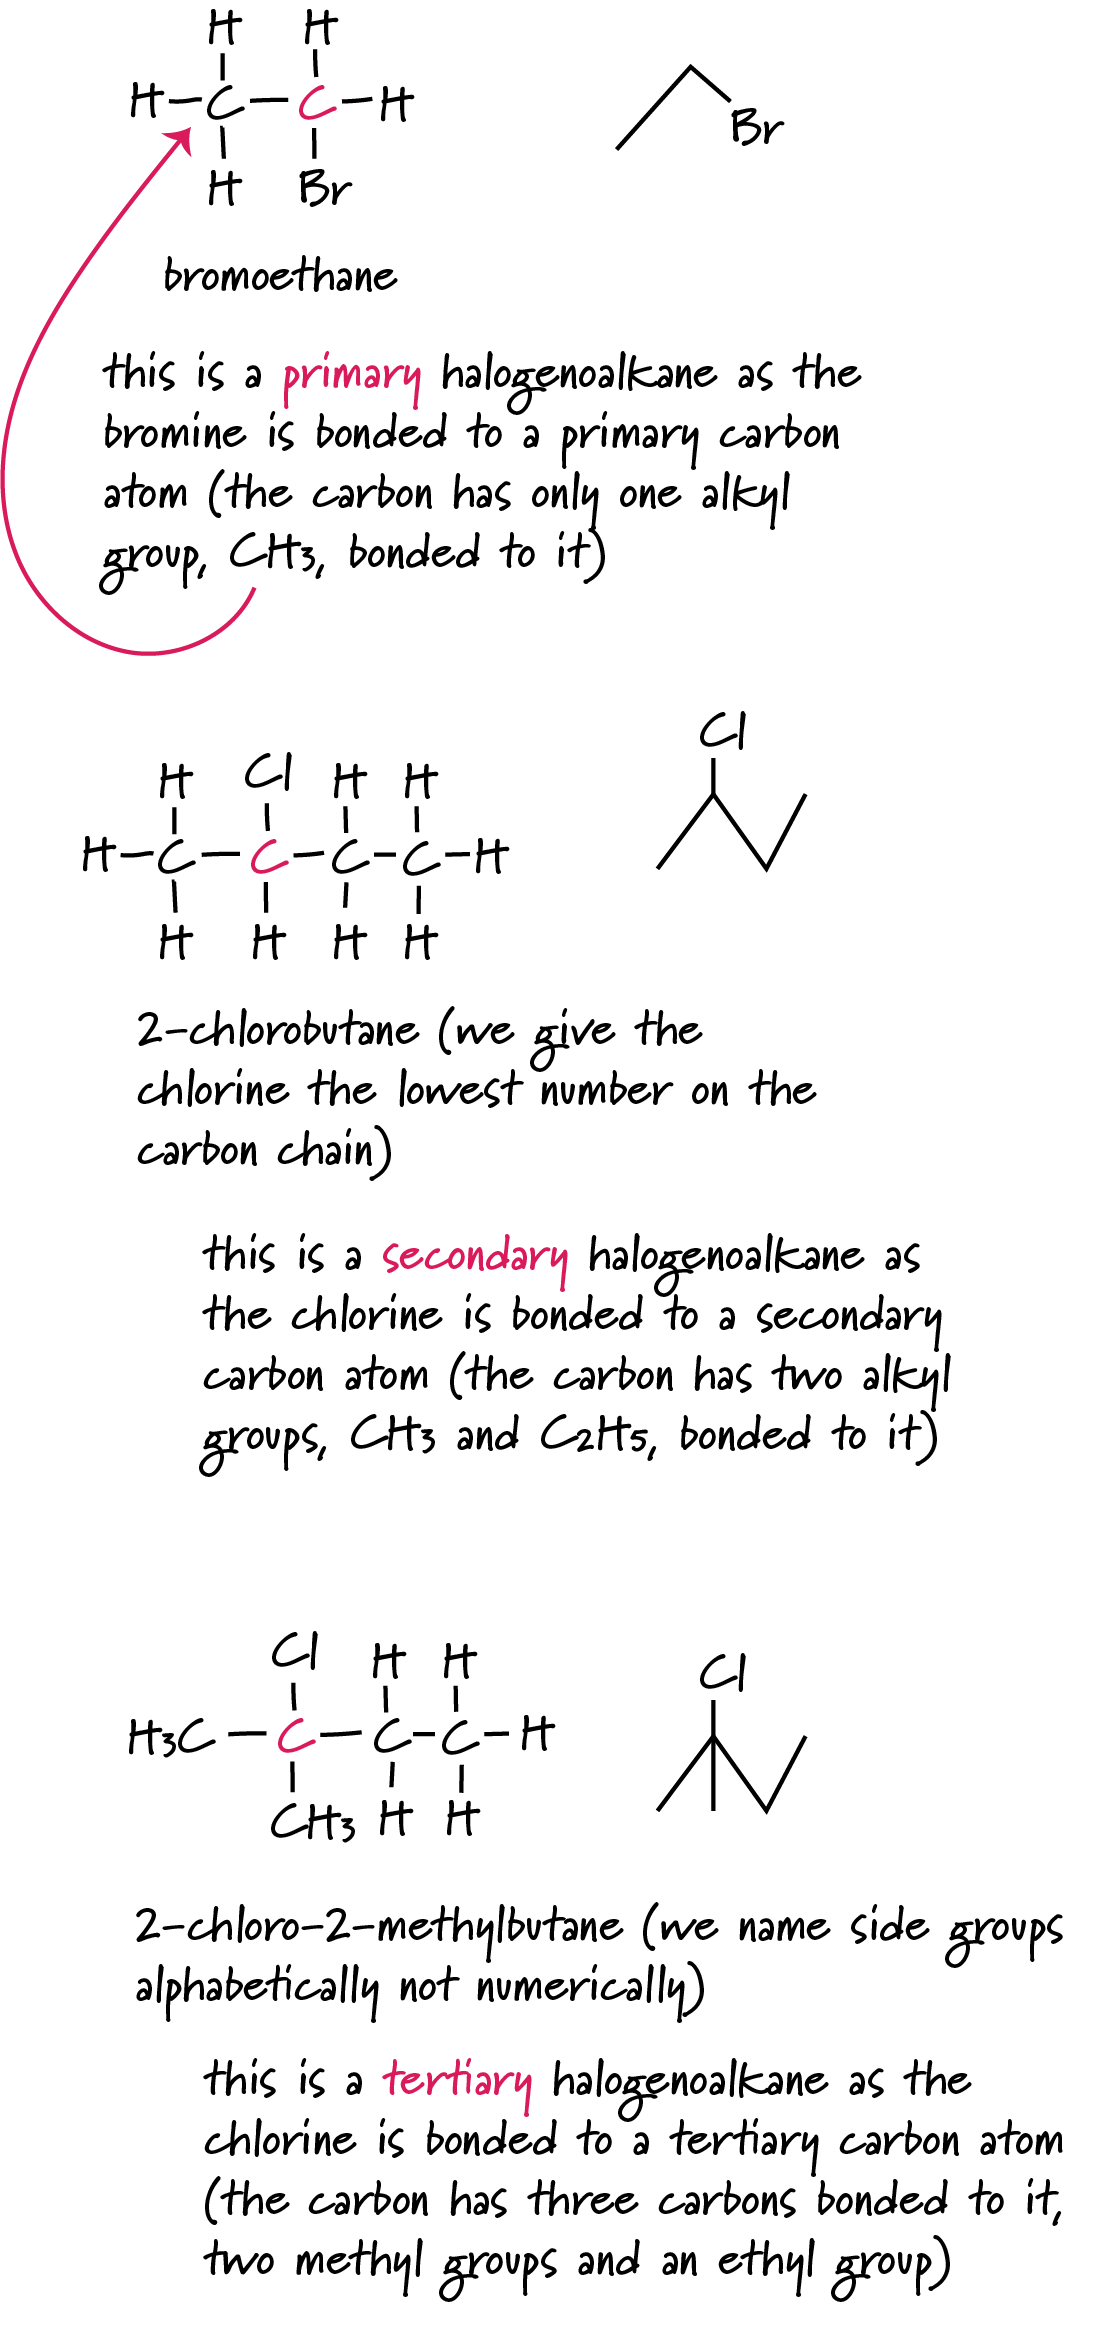 H H
H-C-C-H
H Br
Br
bromoethane
this is a primary halogenoalkane as the
bromine is bonded to a primary carbon
atom (the carbon has only one alkyl
group, CH3, bonded to it)
Cl
H Cl H H
H-C-C-C-C-H
H H H H
2-chlorobutane (we give the
chlorine the lowest number on the
carbon chain)
this is a secondary halogenoalkane as
the chlorine is bonded to a secondary
carbon atom (the carbon has two alkyl
groups, CH3 and C2H5, bonded to it)
Cl H H
Cl
H3C-C-C-C-H
CH3 H H
2-chloro-2-methylbutane (we name side groups
alphabetically not numerically)
this is a tertiary halogenoalkane as the
chlorine is bonded to a tertiary carbon atom
(the carbon has three carbons bonded to it,
two methyl groups and an ethyl group)